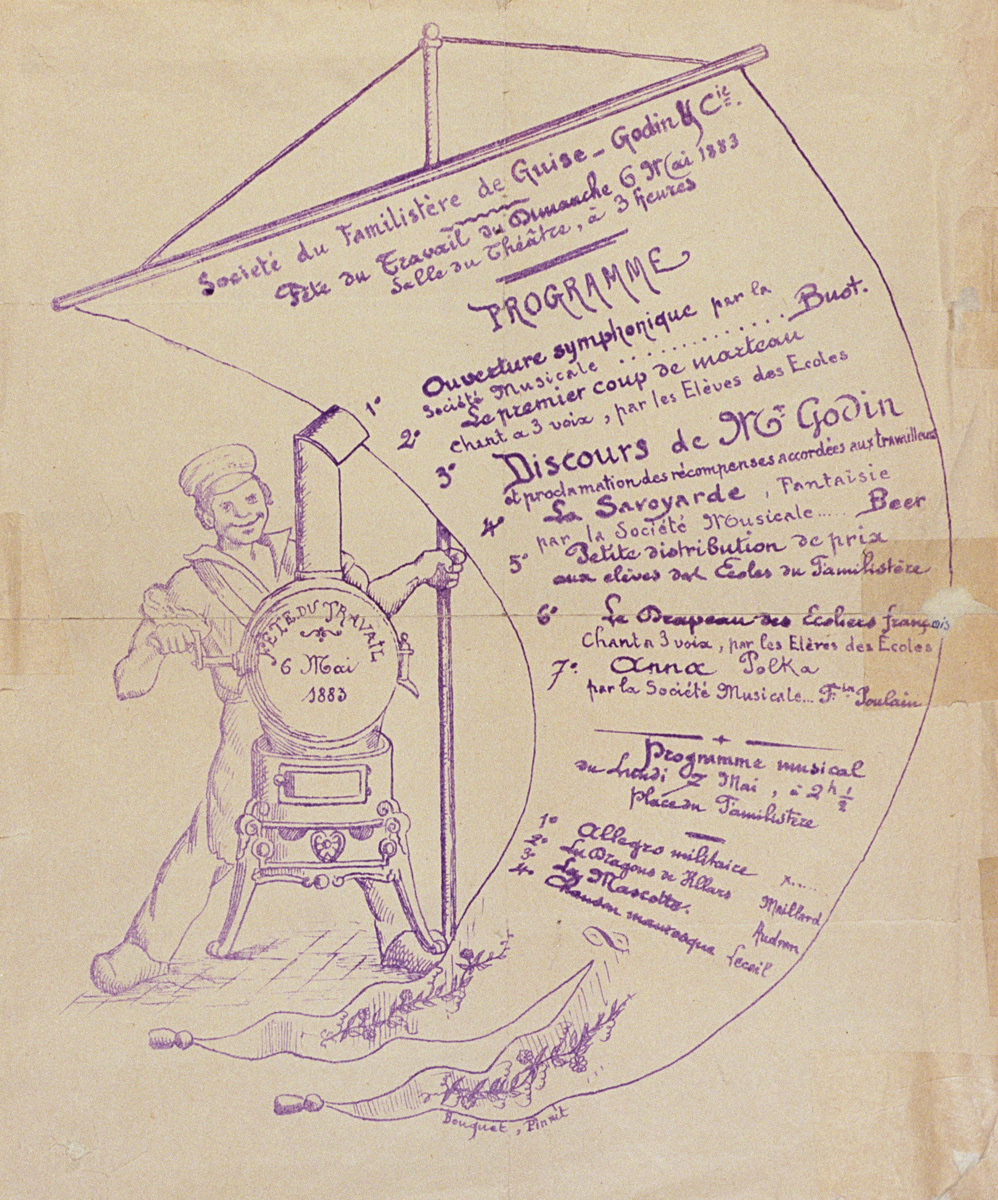 Société du Familistère de Guise - Godin & Cie.
Fête du Travail du Dimanche 6 Mai 1883
Salle du Théâtre, à 3 heures
PROGRAMME
1° Ouverture symphonique par la
Société Musicale ............. Buot.
2° Le premier coup de marteau
Chant a 3 voix, par les Elèves des Ecoles
3° Discours de Mr Godin
et proclamation des récompenses accordées aux travailleurs
4° La Savoyarde, Fantaisie
par la Société Musicale..... Beer
5° Petite distribution de prix
aux elèves des Ecoles du Familistère
6° Le Drapeau des Ecoliers français
Chant a 3 voix, par les Elèves des Ecoles
7° Anna Polka
par la Société Musicale... Poulain
FÊTE DU TRAVAIL
6 Mai
1883
Programme musical
du Lundi 7 Mai, à 2h ½
Place du Familistère
1° Allegro militaire x.....
2° Les Dragons de Villars Maillard
3° La Mascotte. Audran
4° Chanson mauresque
Bouquet, Pinxit